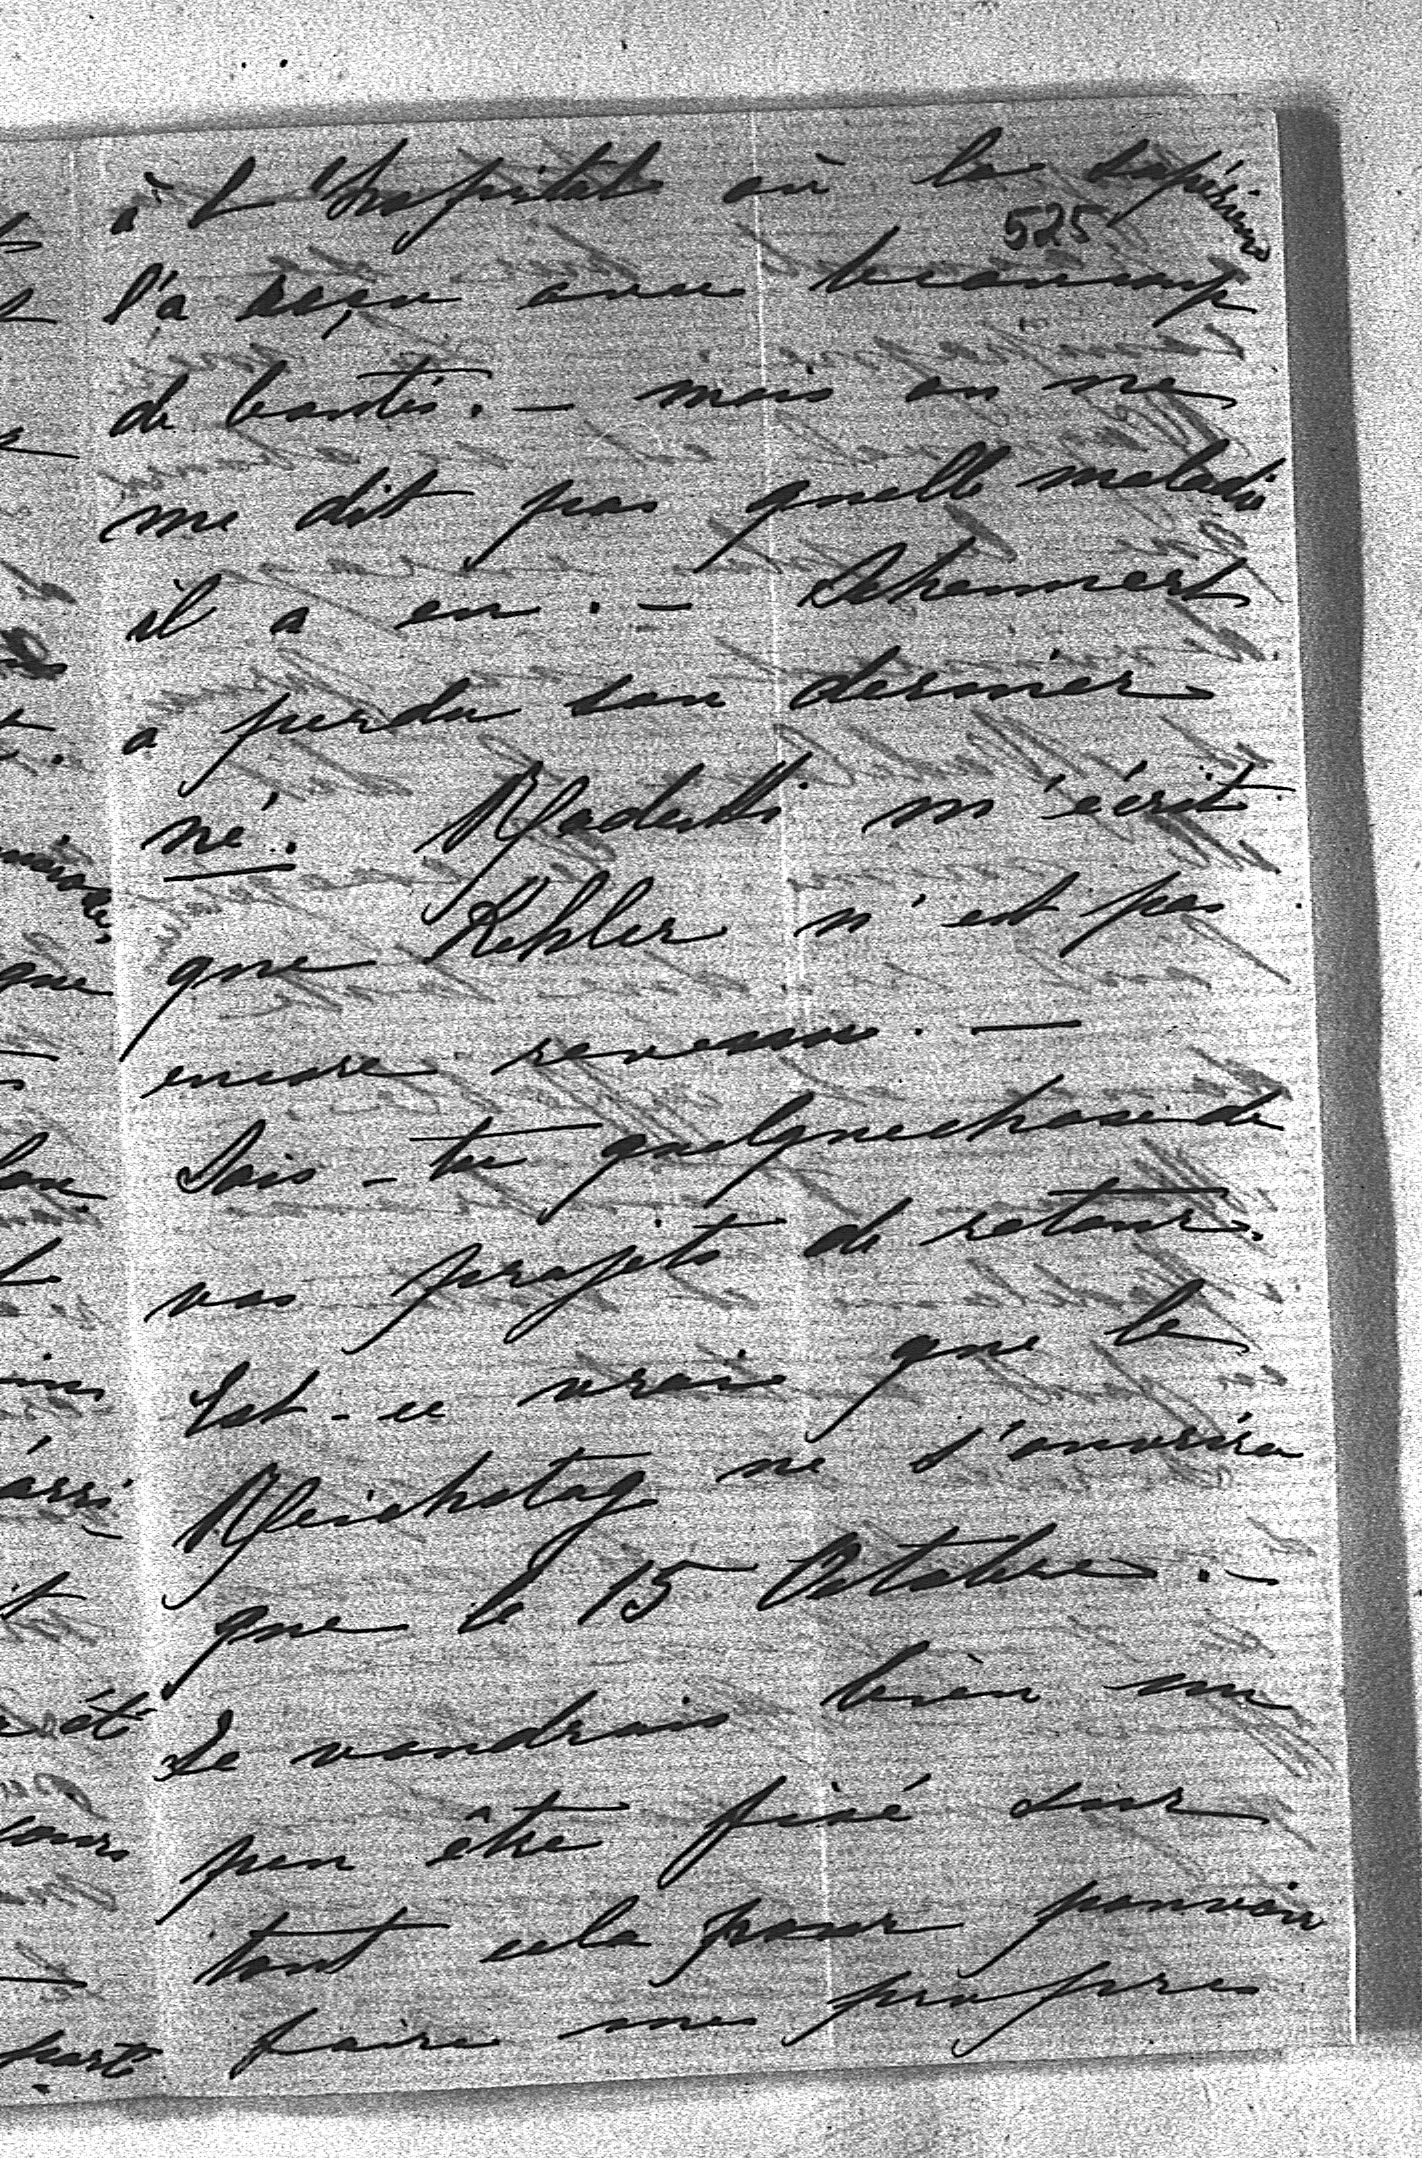 à l'hopital où la Supérieure
525
l'a reçu avec beaucoup
de bontés. — mais on ne
me dit pas quelle maladie
il a eu. — Schemmert
a perdu son dernier
né. m'écrit
que Kehler n'est pas
encore revenu. —
Sais-tu quelquechose de
vos projets de retour.
Est-ce vrai que le
Reichstag ne s'ouvrira
que le 15 Octobre. —
Je voudrais bien un
peu être fixé sur
tout cela pour pouvoir
faire mes propres